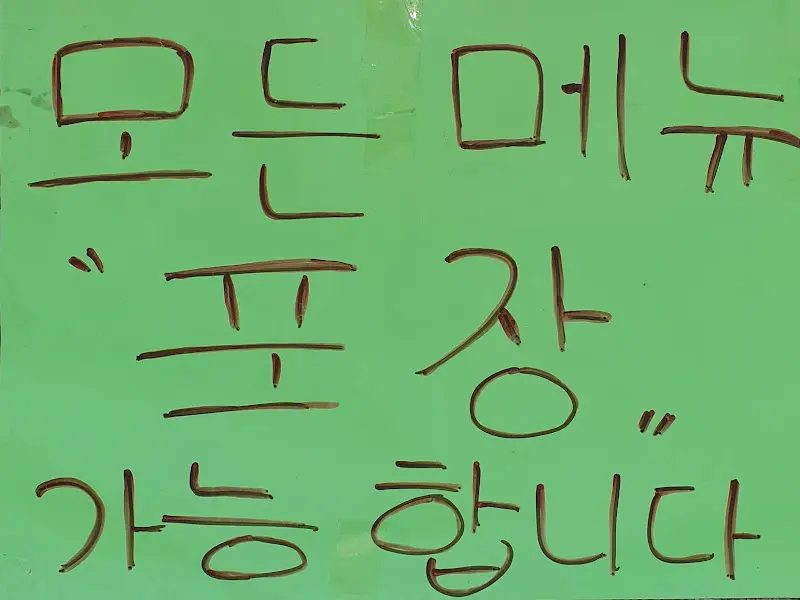 모든 메뉴
"포장"
가능합니다